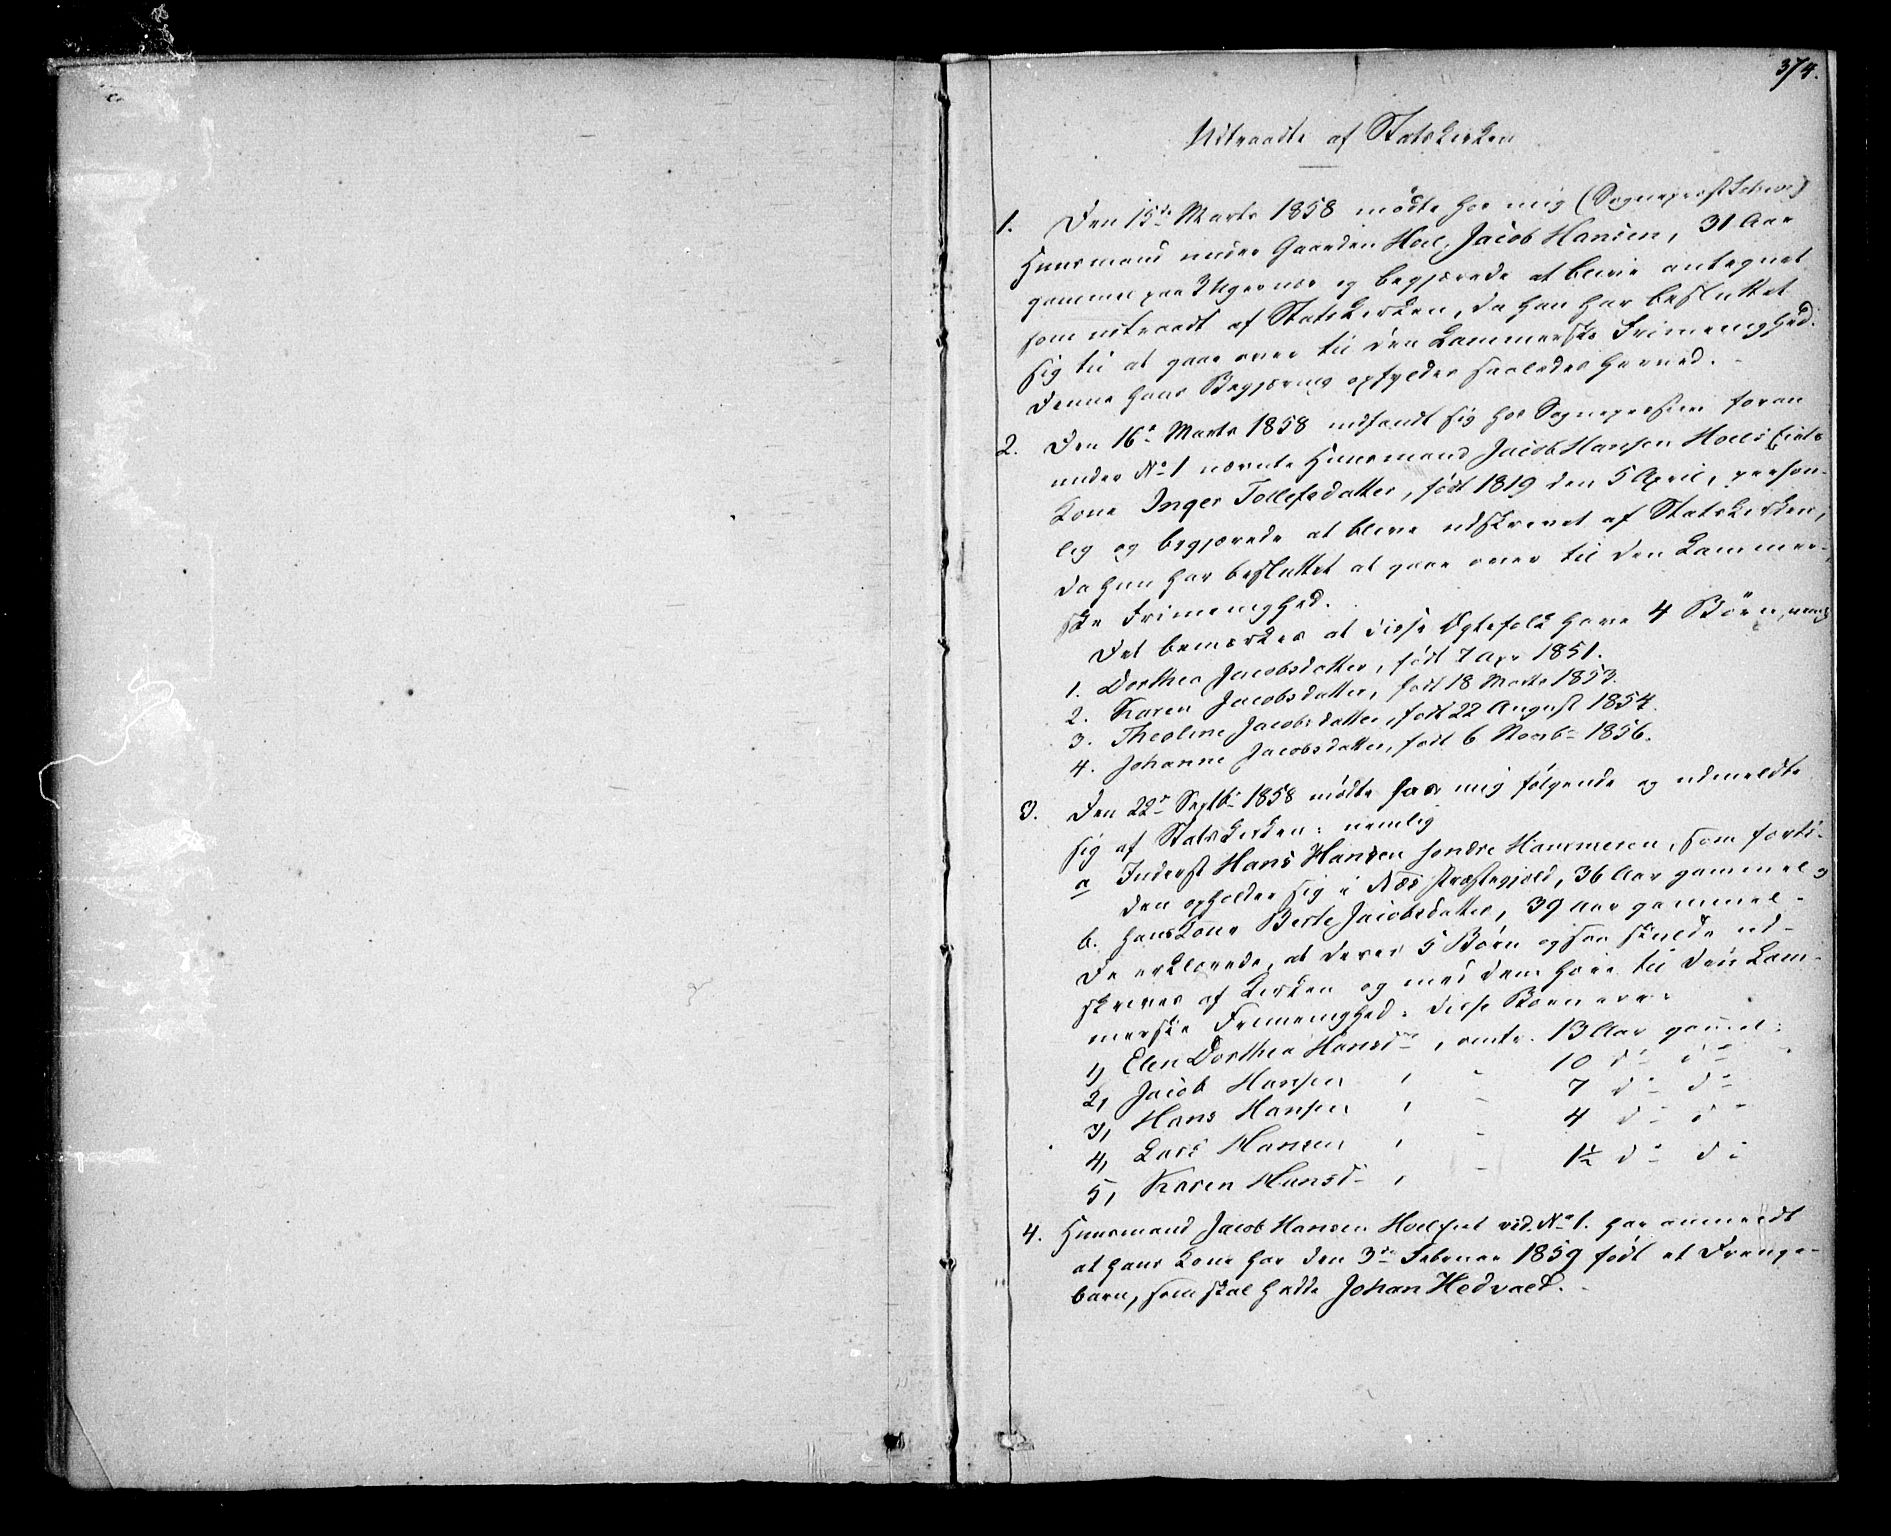 374.
Udtraadte af Statskirken
1. Den 15de Marts 1858 mødte hos mig (Sogneprest
Huusmand under Gaarden Hoel, Jacob Hansen, 31 Aar
gammel paa og begjærede at blive antegnet
som udtraadt af Statskirken, da han har besluttet
sig til at gaae over til den Lammerske Frimenighed.
Denne hans Begjæring opfyldes saaledes herved.
2. Den 16de Marts 1858 indfandt sig hos Sognepresten foran
under No 1 nævnte Huusmand Jacob Hansen Hoels
Kone Inger Tollefsdatter, født 1819 den 5 April, person-
lig og begjærede at blive udskrevet af Statskirken,
da hun har besluttet at gaae over til den Lammer-
ske Frimenighed.
Det bemærkes at disse Egtefolk have 4 Børn,
1. Dorthea Jacobsdatter, født 7 Apr 1851.
2. Karen Jacobsdatter, født 18 Marts 1853.
3. Theoline Jacobsdatter, født 22 August 1854.
4. Johanne Jacobsdatter, født 6 Novbr 1856.
3. Den 22de Septbr 1858 mødte for mig følgende og udmeldte
sig af Statskirken: nemlig
a Inderst Hans Hansen søndre Hammeren, som forti-
den opholder sig i Næs Præstegjeld, 36 Aar gammel,
b. hans Kone Berte Jacobsdatter, 39 aar gammel.
De erklærede, at deres 5 Børn ogsaa skulde ud-
skrives af Kirken og med dem høre til den Lam-
merske Frimenighed: disse Børn ere:
1) Elen Dorthea Hansdr, omtr. 13 Aar gammel:
2, Jacob Hansen , - 10 do do
3, Hans Hansen , - 7 do do
4, Lars Hansen , - 4 do do
5, Karen Hansdr , - 1½ do do
4. Huusmand Jacob Hansen Hoel vid. No 1. har anmeldt
at hans Kone har den 3de Februar 1859 født et Drenge-
barn, som skal hedde Johan Hedvald.